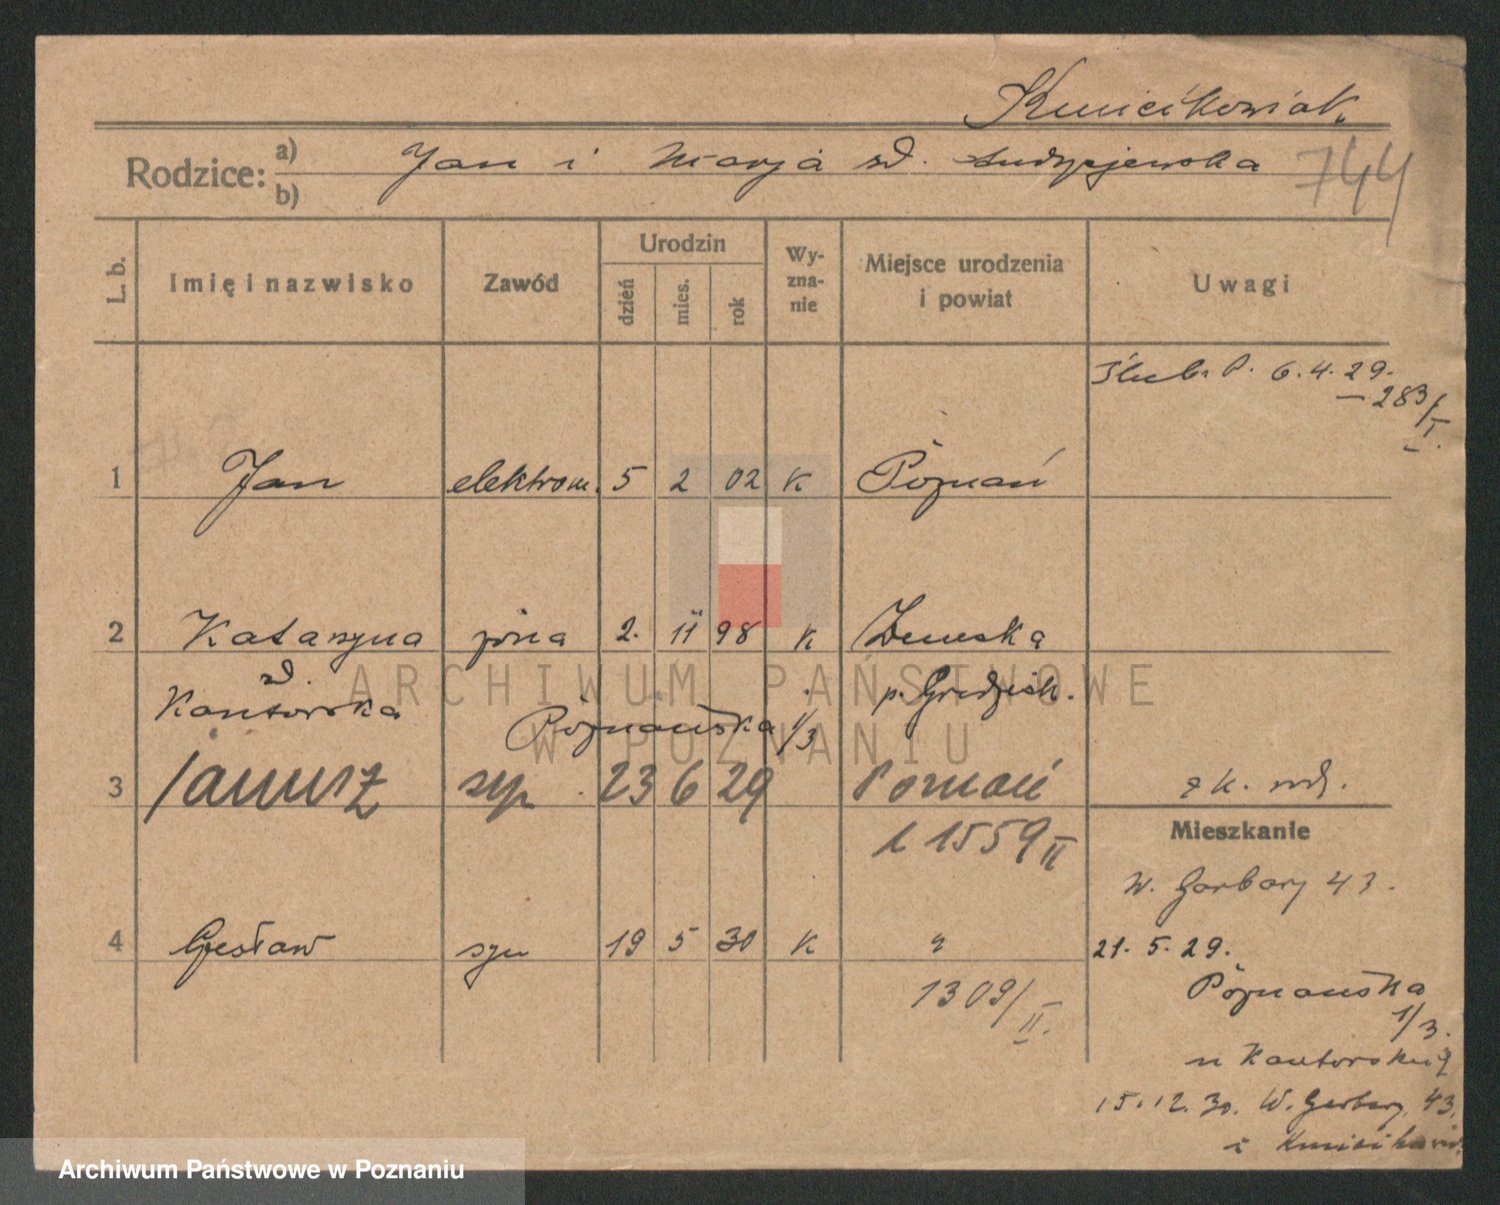 Kmiecikowiak
Rodzice: a) b) Jan i Marja zd. Andrzejewska 744
L. b. Imię i nazwisko Zawód Urodzin dzień mies. rok Wy-zna-nie Miejsce urodzenia i powiat Uwagi
Ślub P. 6.4.29.
— 283/I.
1 Jan elektrom. 5 2 02 K Poznań
2 Katarzyna żona 2. 11 98 K
zd. p. Grodzisk.
Kantorska Poznańska 1/3
3 Janusz syn 23 6 29 Poznań z k. rodz.
1559 II
Mieszkanie
W. Garbary 43.
4 Czesław syn 19 5 30 K " 21. 5. 29.
1309/II. Poznańska
1/3.
u Kantorskiej
15.12.30. W. Garbary 43.
ARCHIWUM PAŃSTWOWE
W POZNANIU
Archiwum Państwowe w Poznaniu